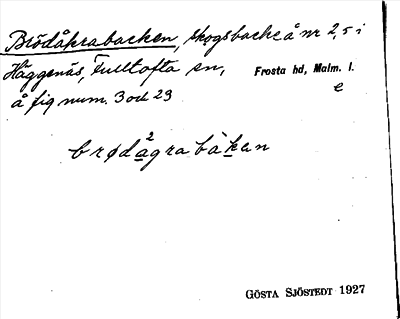 Brödåkrabacken, skogsbacke å nr 2, 5 i
Häggenäs, Fulltofta sn, Frosta hd, Malm. l.
å fig num. 3 och 23 e
brødågrabàkan
GÖSTA SJÖSTEDT 1927